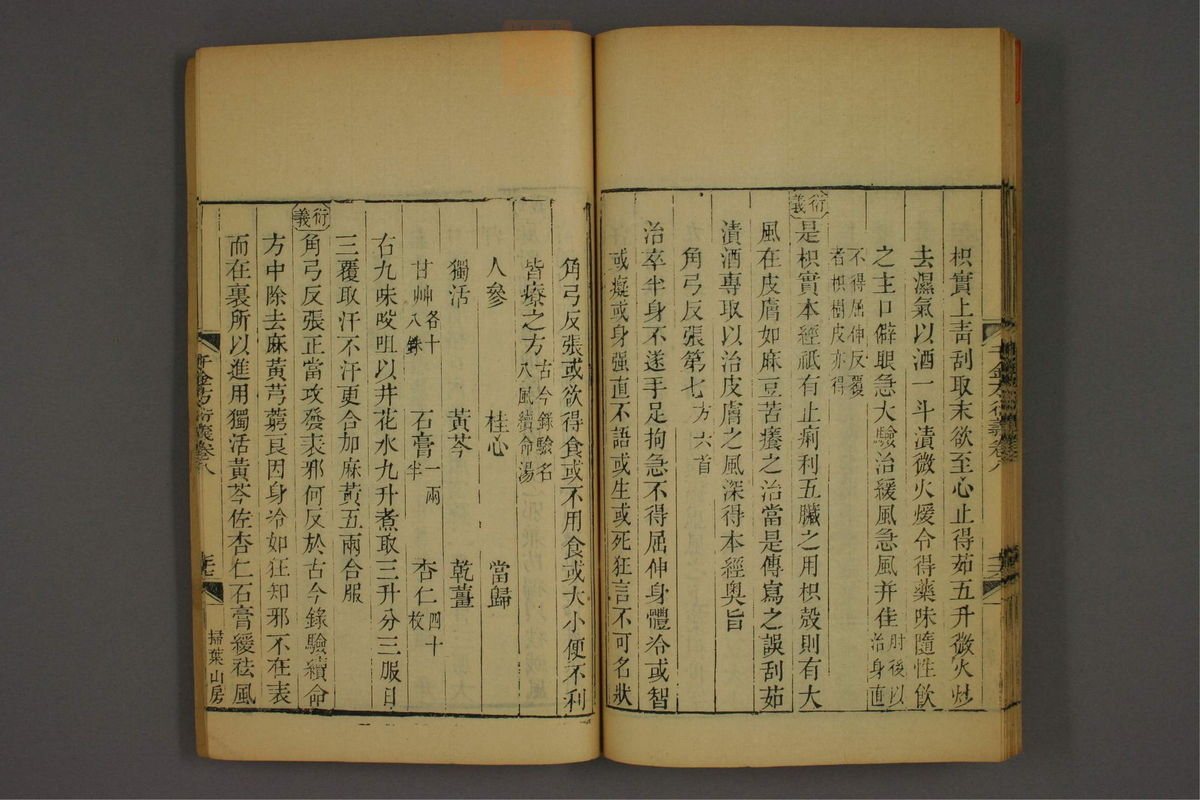 枳實上青刮取末欲至心止得茹五升微火炒
去濕氣以酒一斗漬微火煖令得藥味隨性飲
之主口僻眼急大驗治緩風急風并佳肘後以治身直
不得屈伸反覆者枳樹皮亦得
衍義
是枳實本經祇有止痢利五臟之用枳殼則有大
風在皮膚如麻豆苦癢之治當是傳寫之誤刮茹
漬酒專取以治皮膚之風深得本經奧旨
角弓反張第七方六首
治卒半身不遂手足拘急不得屈伸身體冷或智
或癡或身强直不語或生或死狂言不可名狀
角弓反張或欲得食或不用食或大小便不利
皆療之方古今錄驗名八風續命湯
人參 桂心 當歸
獨活 黃芩 乾薑
甘艸各十八銖 石膏一兩半 杏仁四十枚
右九味㕮咀以井花水九升煮取三升分三服日
三覆取汗不汗更合加麻黃五兩合服
衍義
角弓反張正當攻發表邪何反於古今錄驗續命
方中除去麻黃芎藭良因身冷如狂知邪不在表
而在裏所以進用獨活黃芩佐杏仁石膏緩祛風
千金方衍義卷八
掃葉山房